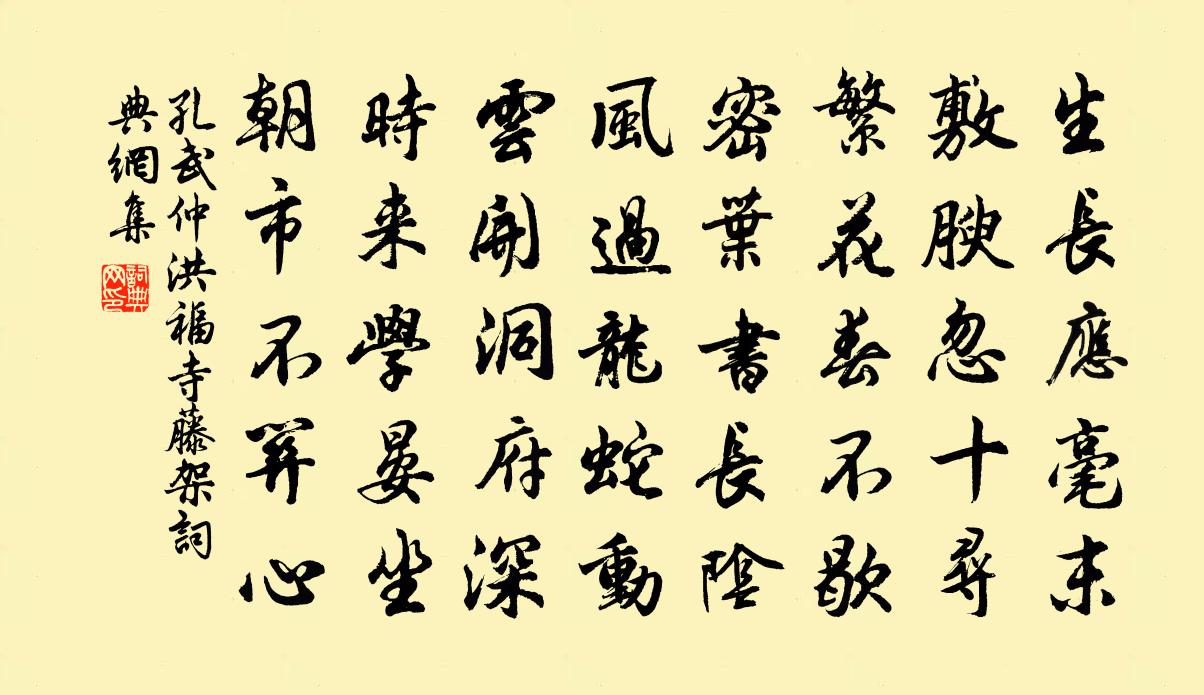 生長應毫末
敷腴忽十尋
繁花春不歇
密葉書長陰
風過龍蛇動
雲開洞府深
時来學晏坐
朝市不關心
孔武仲洪福寺藤架詞
典網集
詞典
网印